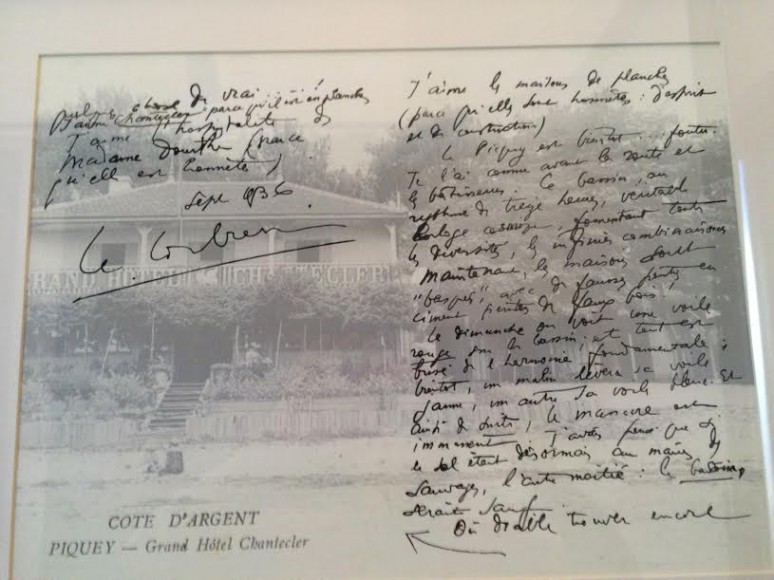 J'aime les maisons de planches
(parce qu'elles sont honnêtes : d'esprit
et de construction)
Le Piquey est bientôt ... foutu.
Je l'ai connu avant la route et
les bâtisseurs. Ce bassin, au
rythme de treize heures, véritable
horloge cosmique, fomentant toutes
les diversités, les infinies combinaisons
Maintenant, les maisons sont
"basques", avec de fausses pentes en
ciment peintes de faux bois !
Le dimanche on voit une voile
rouge sur le bassin, et tout est
de l'harmonie fondamentale ;
bientôt, un matin lèvera sa voile
jaune, un autre sa voile bleue. Et
ainsi de suite, le massacre est
imminent. J'avais pensé que si
le sol était désormais aux mains des
sauvages, l'autre moitié : le bassin,
serait sauf.
Où diable trouver encore
chose de vrai ... !
J'aime Chantecler parce qu'il est en planches
J'aime l'hospitalité de
Madame Dourthe (parce
qu'elle est honnête)
Sept 1936
Le Corbusier
GRAND HÔTEL CHANTECLER
COTE D'ARGENT
PIQUEY — Grand Hôtel Chantecler